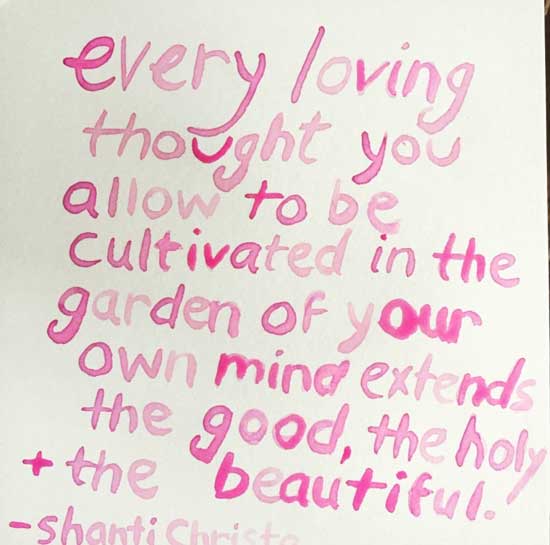 every loving
thought you
allow to be
cultivated in the
garden of your
own mind extends
the good, the holy
+ the beautiful.
- shanti